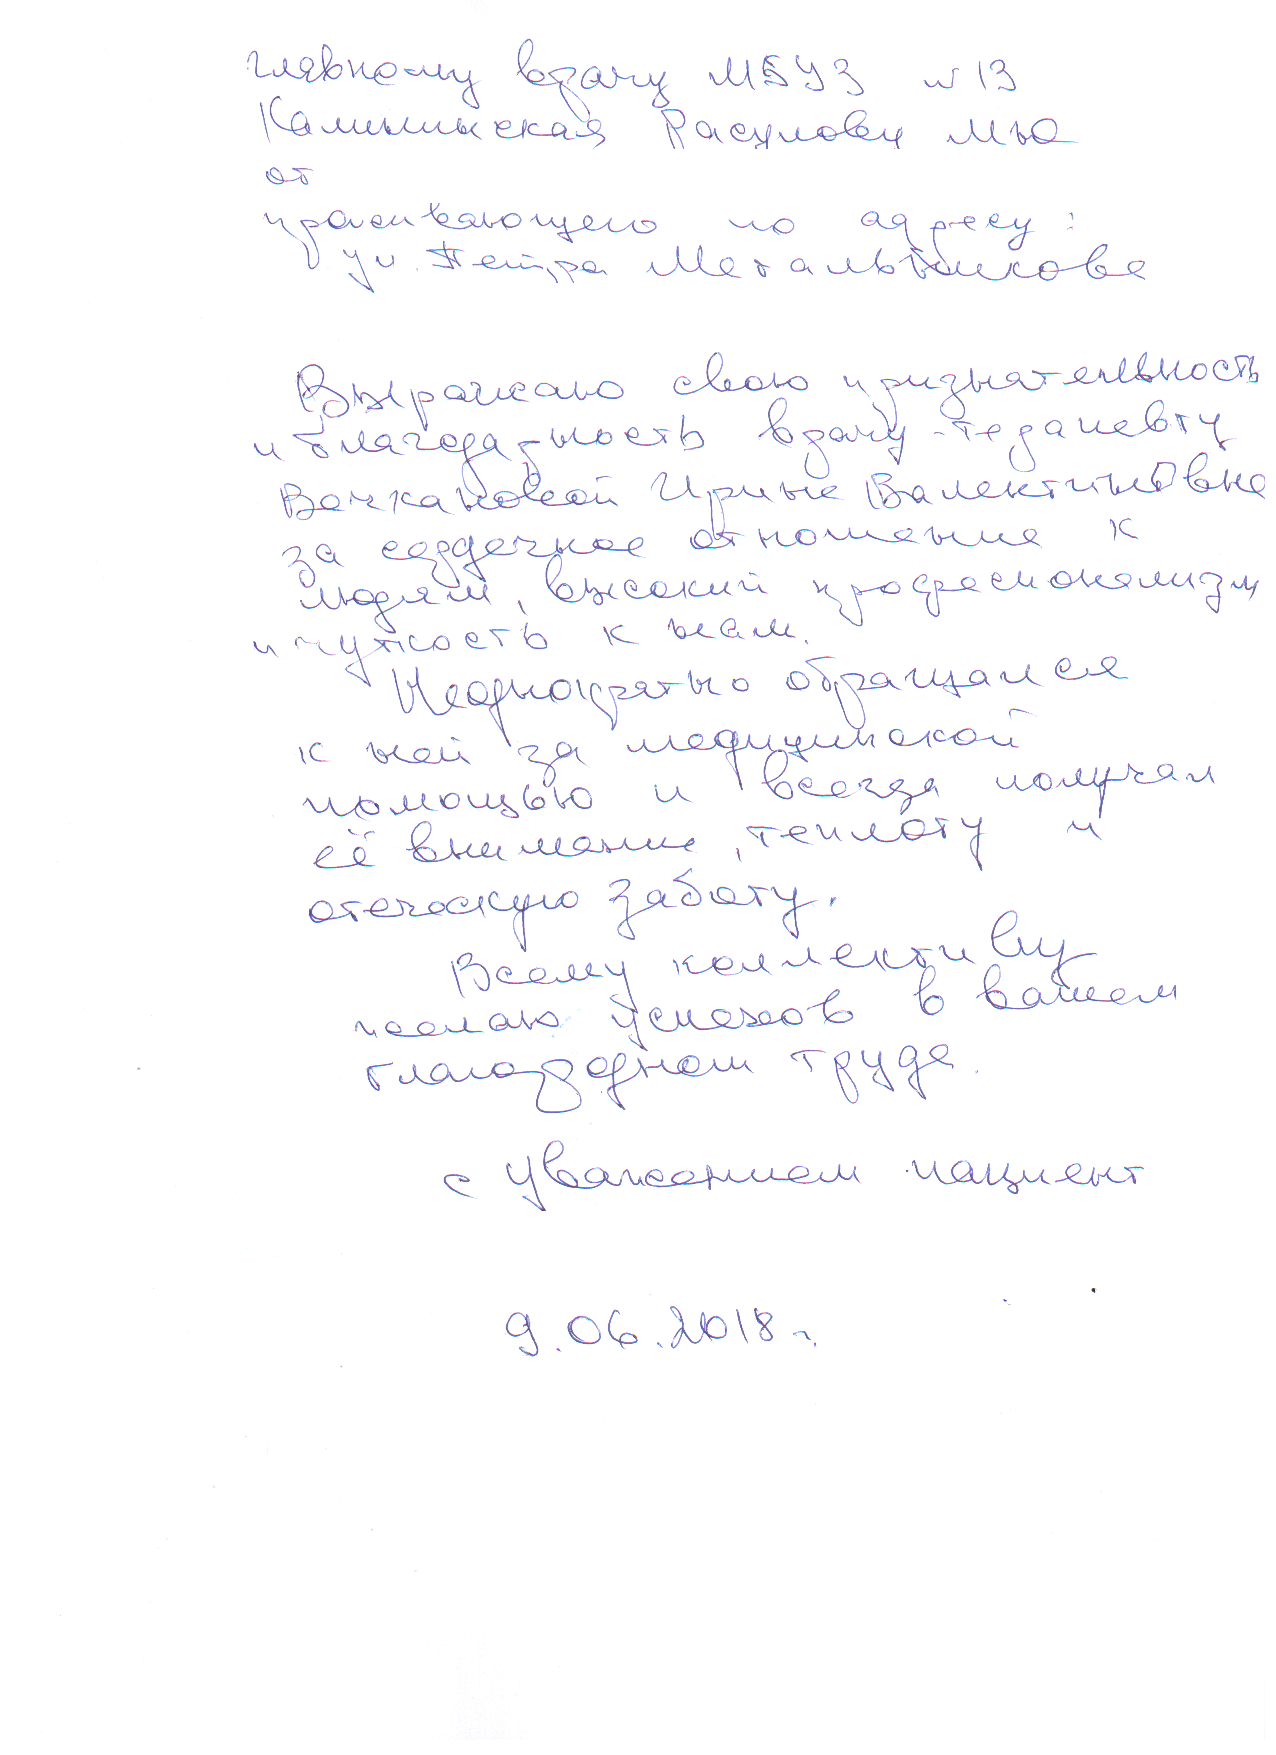 главному врачу МБУЗ №13
Калининская Расулову МЮ
от
проживающего по адресу:
ул. Петра Метальникова
Выражаю свою признательность
и благодарность врачу-терапевту
Вечкановой Ирине Валентиновне
за сердечное отношение к
людям, высокий професионализм
и чуткость к нам.
Неоднократно обращался
к ней за медицинской
помощью и всегда получал
её внимание, теплоту и
отеческую заботу.
Всему коллективу
желаю успехов в вашем
благородном труде.
с уважением пациент
9.06.2018 г.